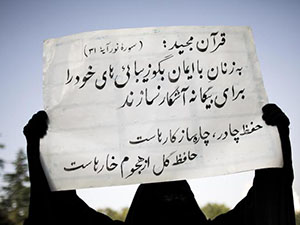 قرآن مجید: (سورهٔ نور آیهٔ ۳۱)
به زنان با ایمان بگو زیبائی های خود را
برای بیگانه آشکار نسازند
حفظ چادر، چاره ساز کار هاست
حافظ گل از هجوم خار هاست